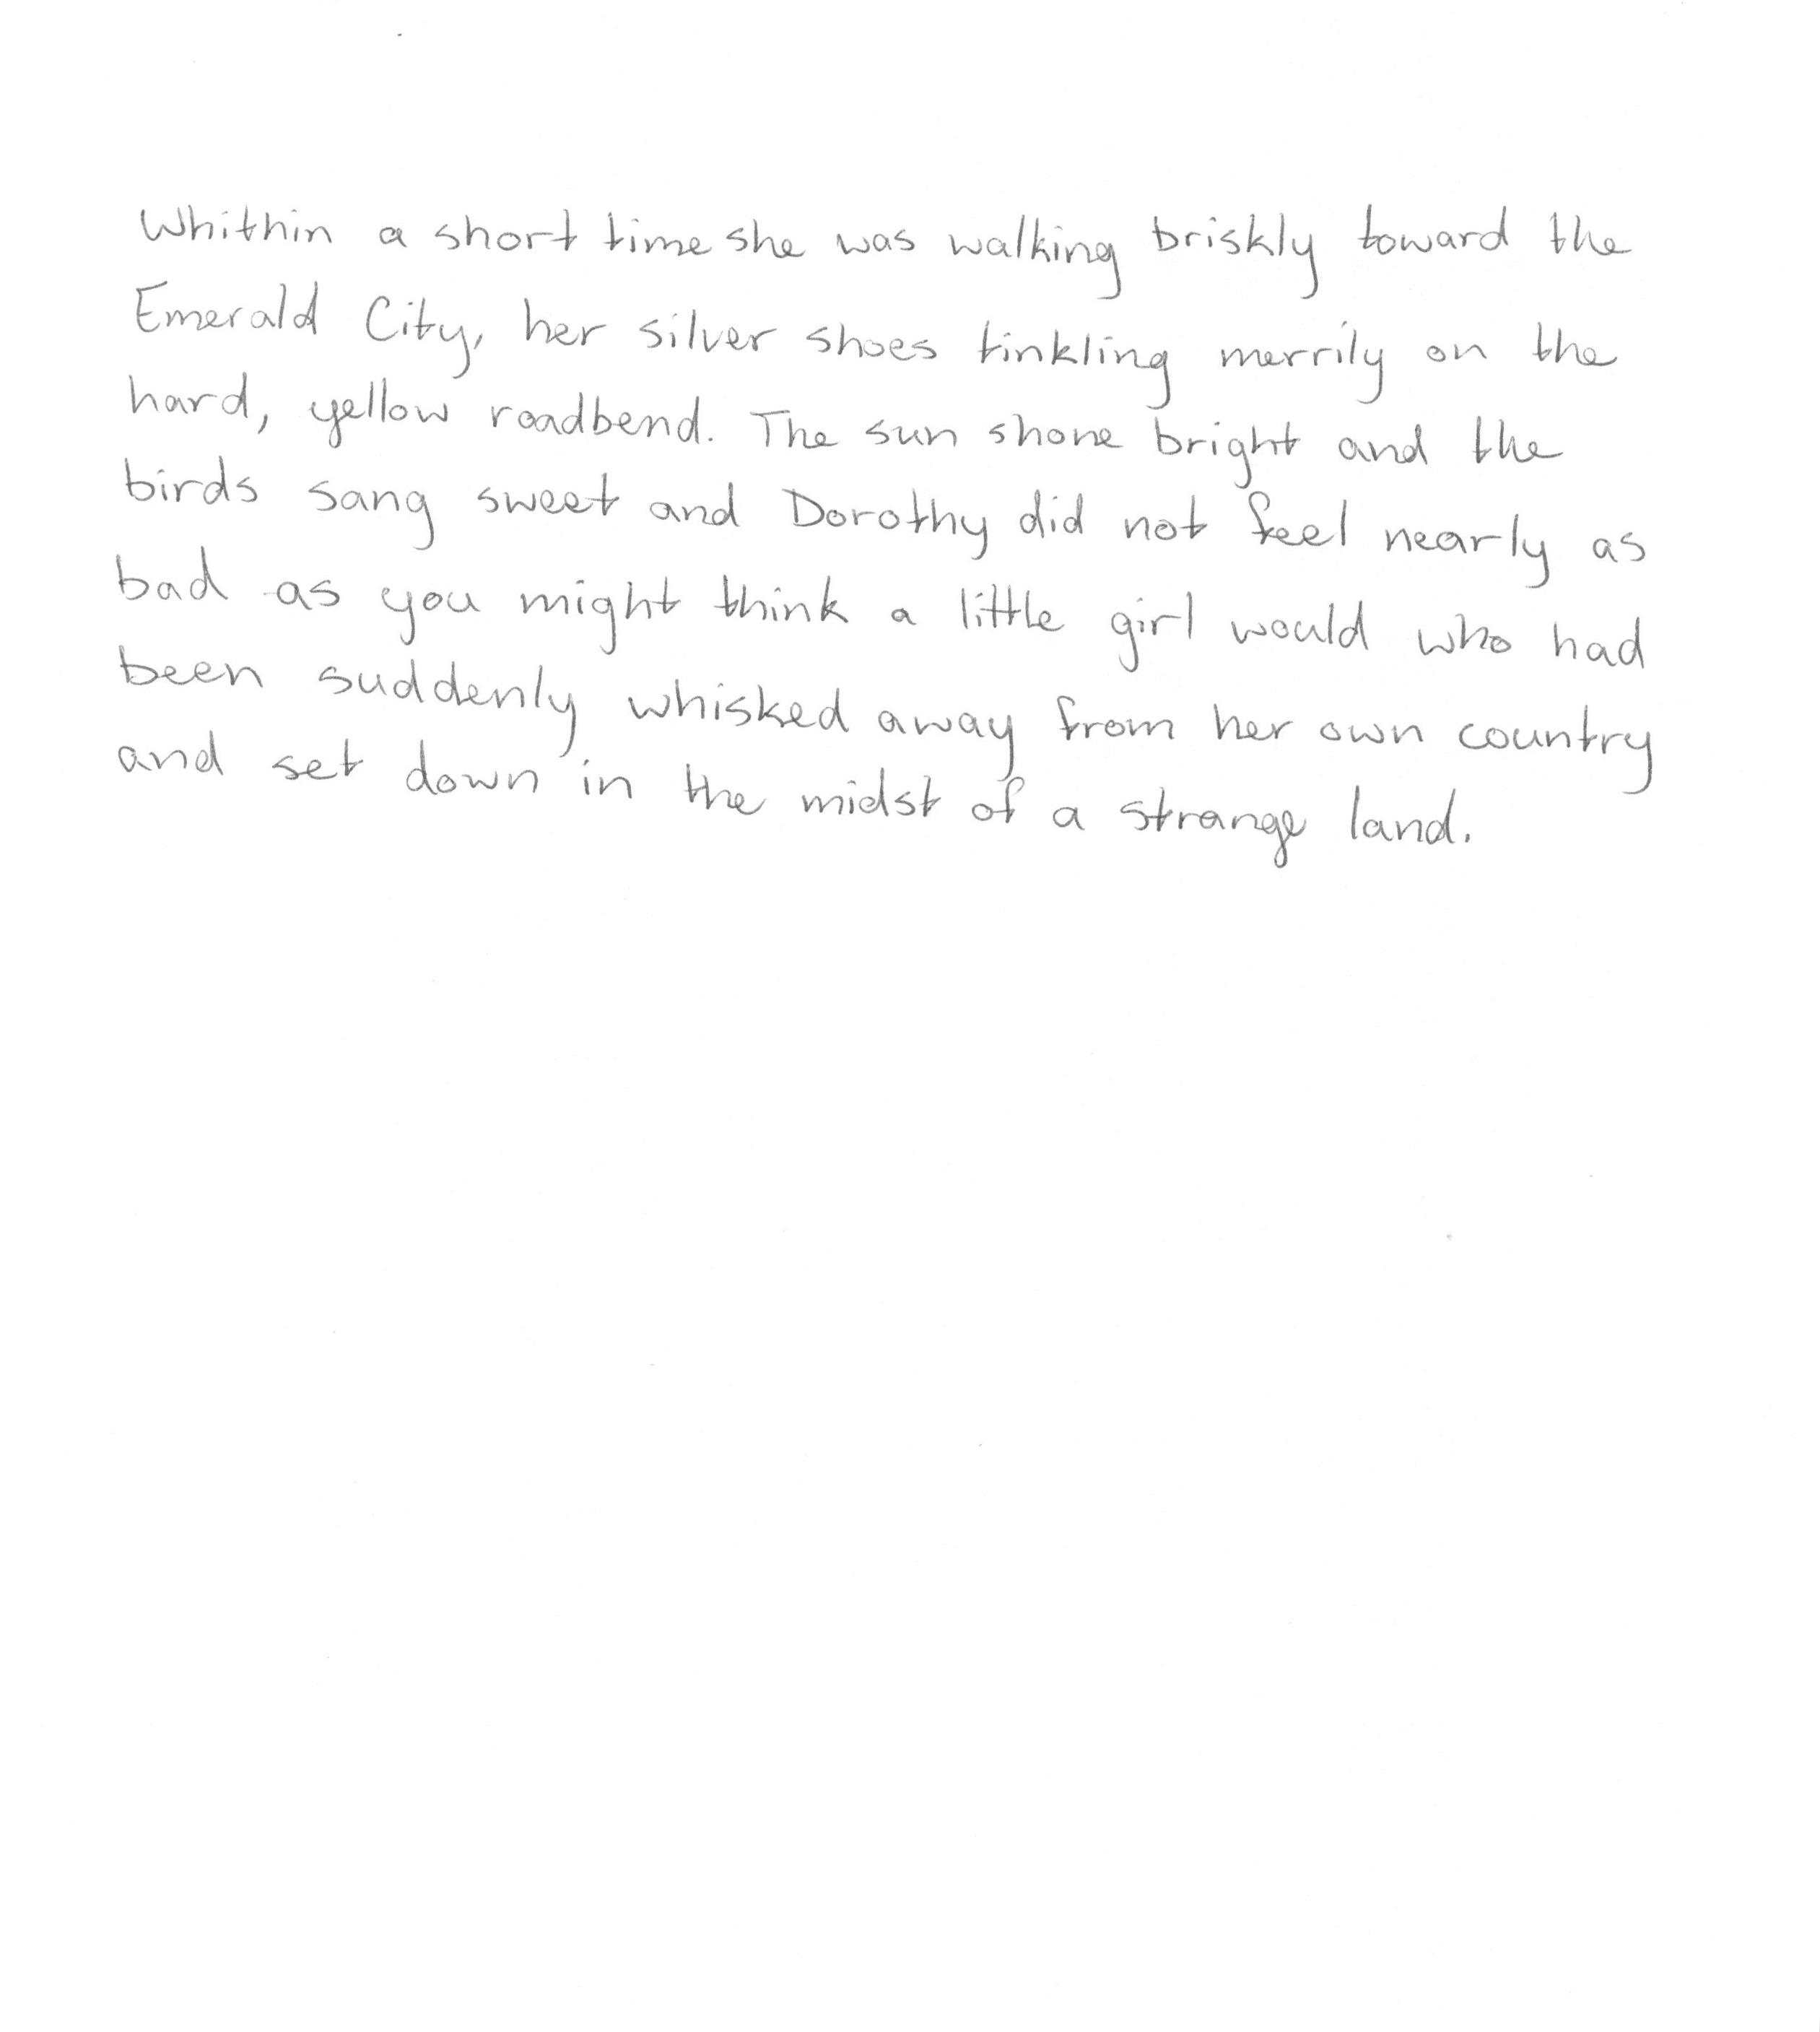 Whithin a short time she was walking briskly toward the
Emerald City, her silver shoes tinkling merrily on the
hard, yellow roadbend. The sun shone bright and the
birds sang sweet and Dorothy did not feel nearly as
bad as you might think a little girl would who had
been suddenly whisked away from her own country
and set down in the midst of a strange land.